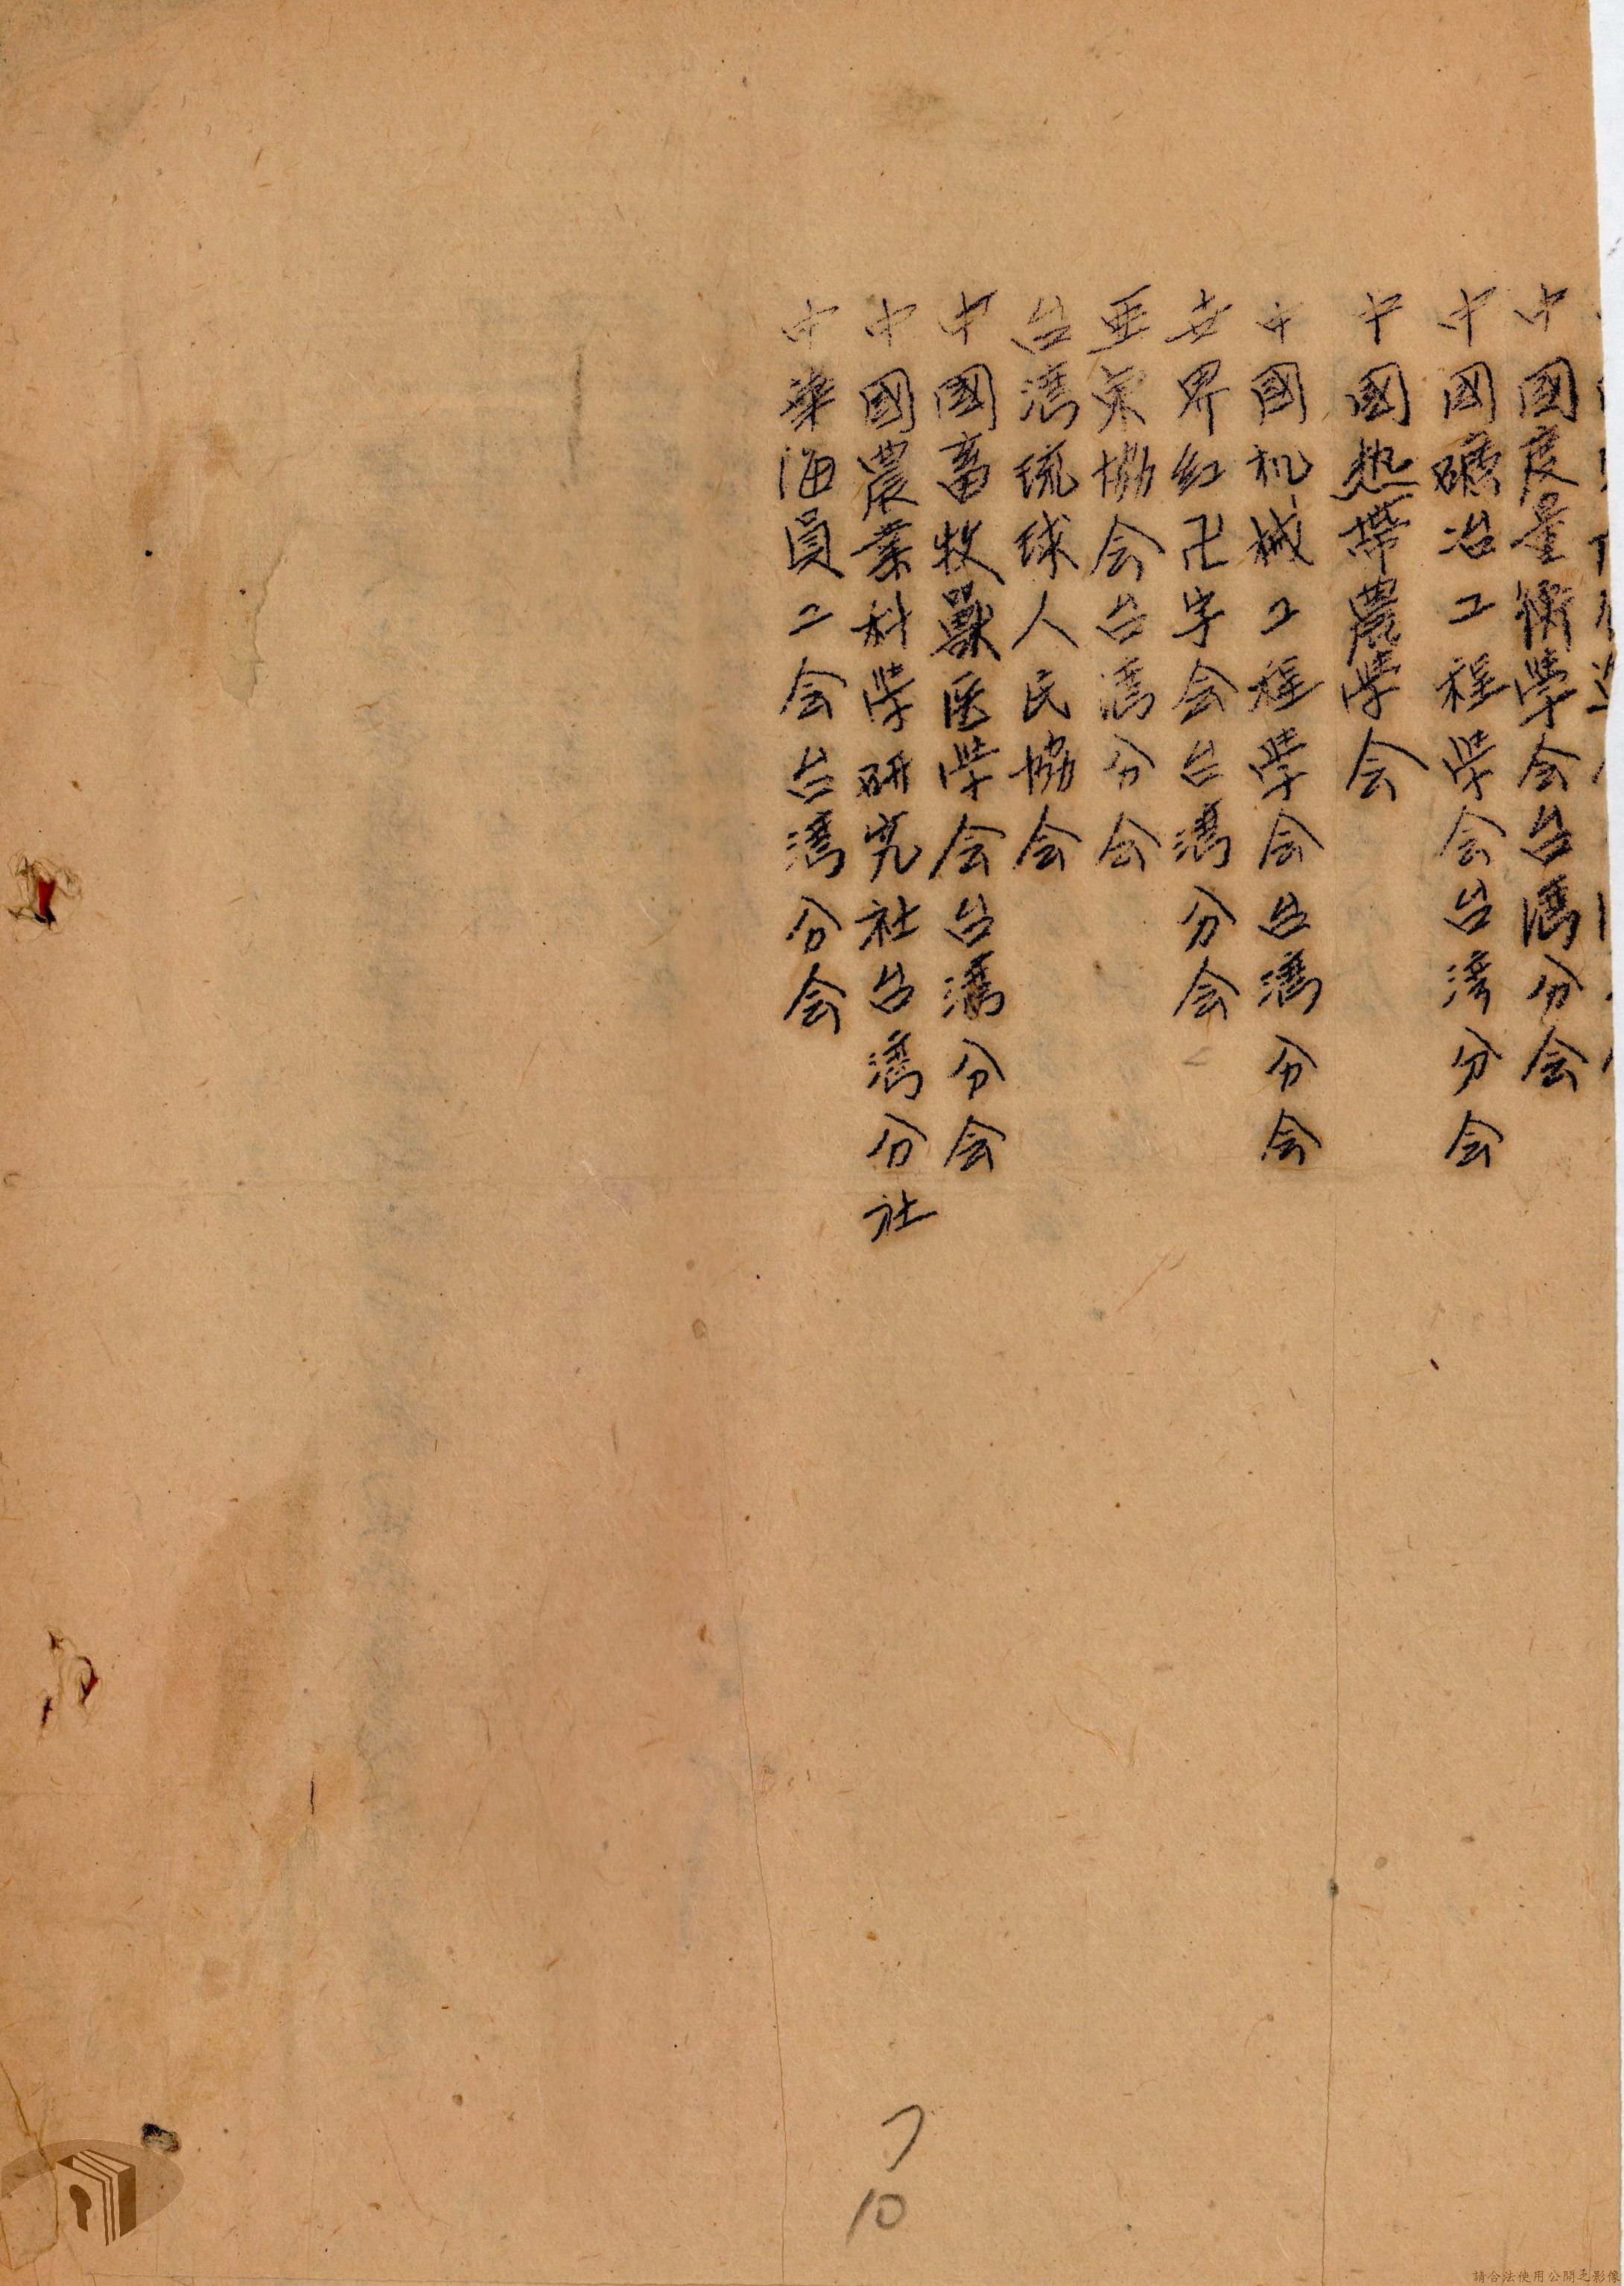 中國度量衡學会台湾分会
中国礦冶工程学会台湾分会
中國热帶農学会
中國机械工程学会台湾分会
世界紅卍字会台湾分会
亜東協会台湾分会
台湾琉球人民協会
中國畜牧獣医学会台湾分会
中國農業科学研究社台湾分社
中華海員工会台湾分会
7
10
請合法使用公開之影像